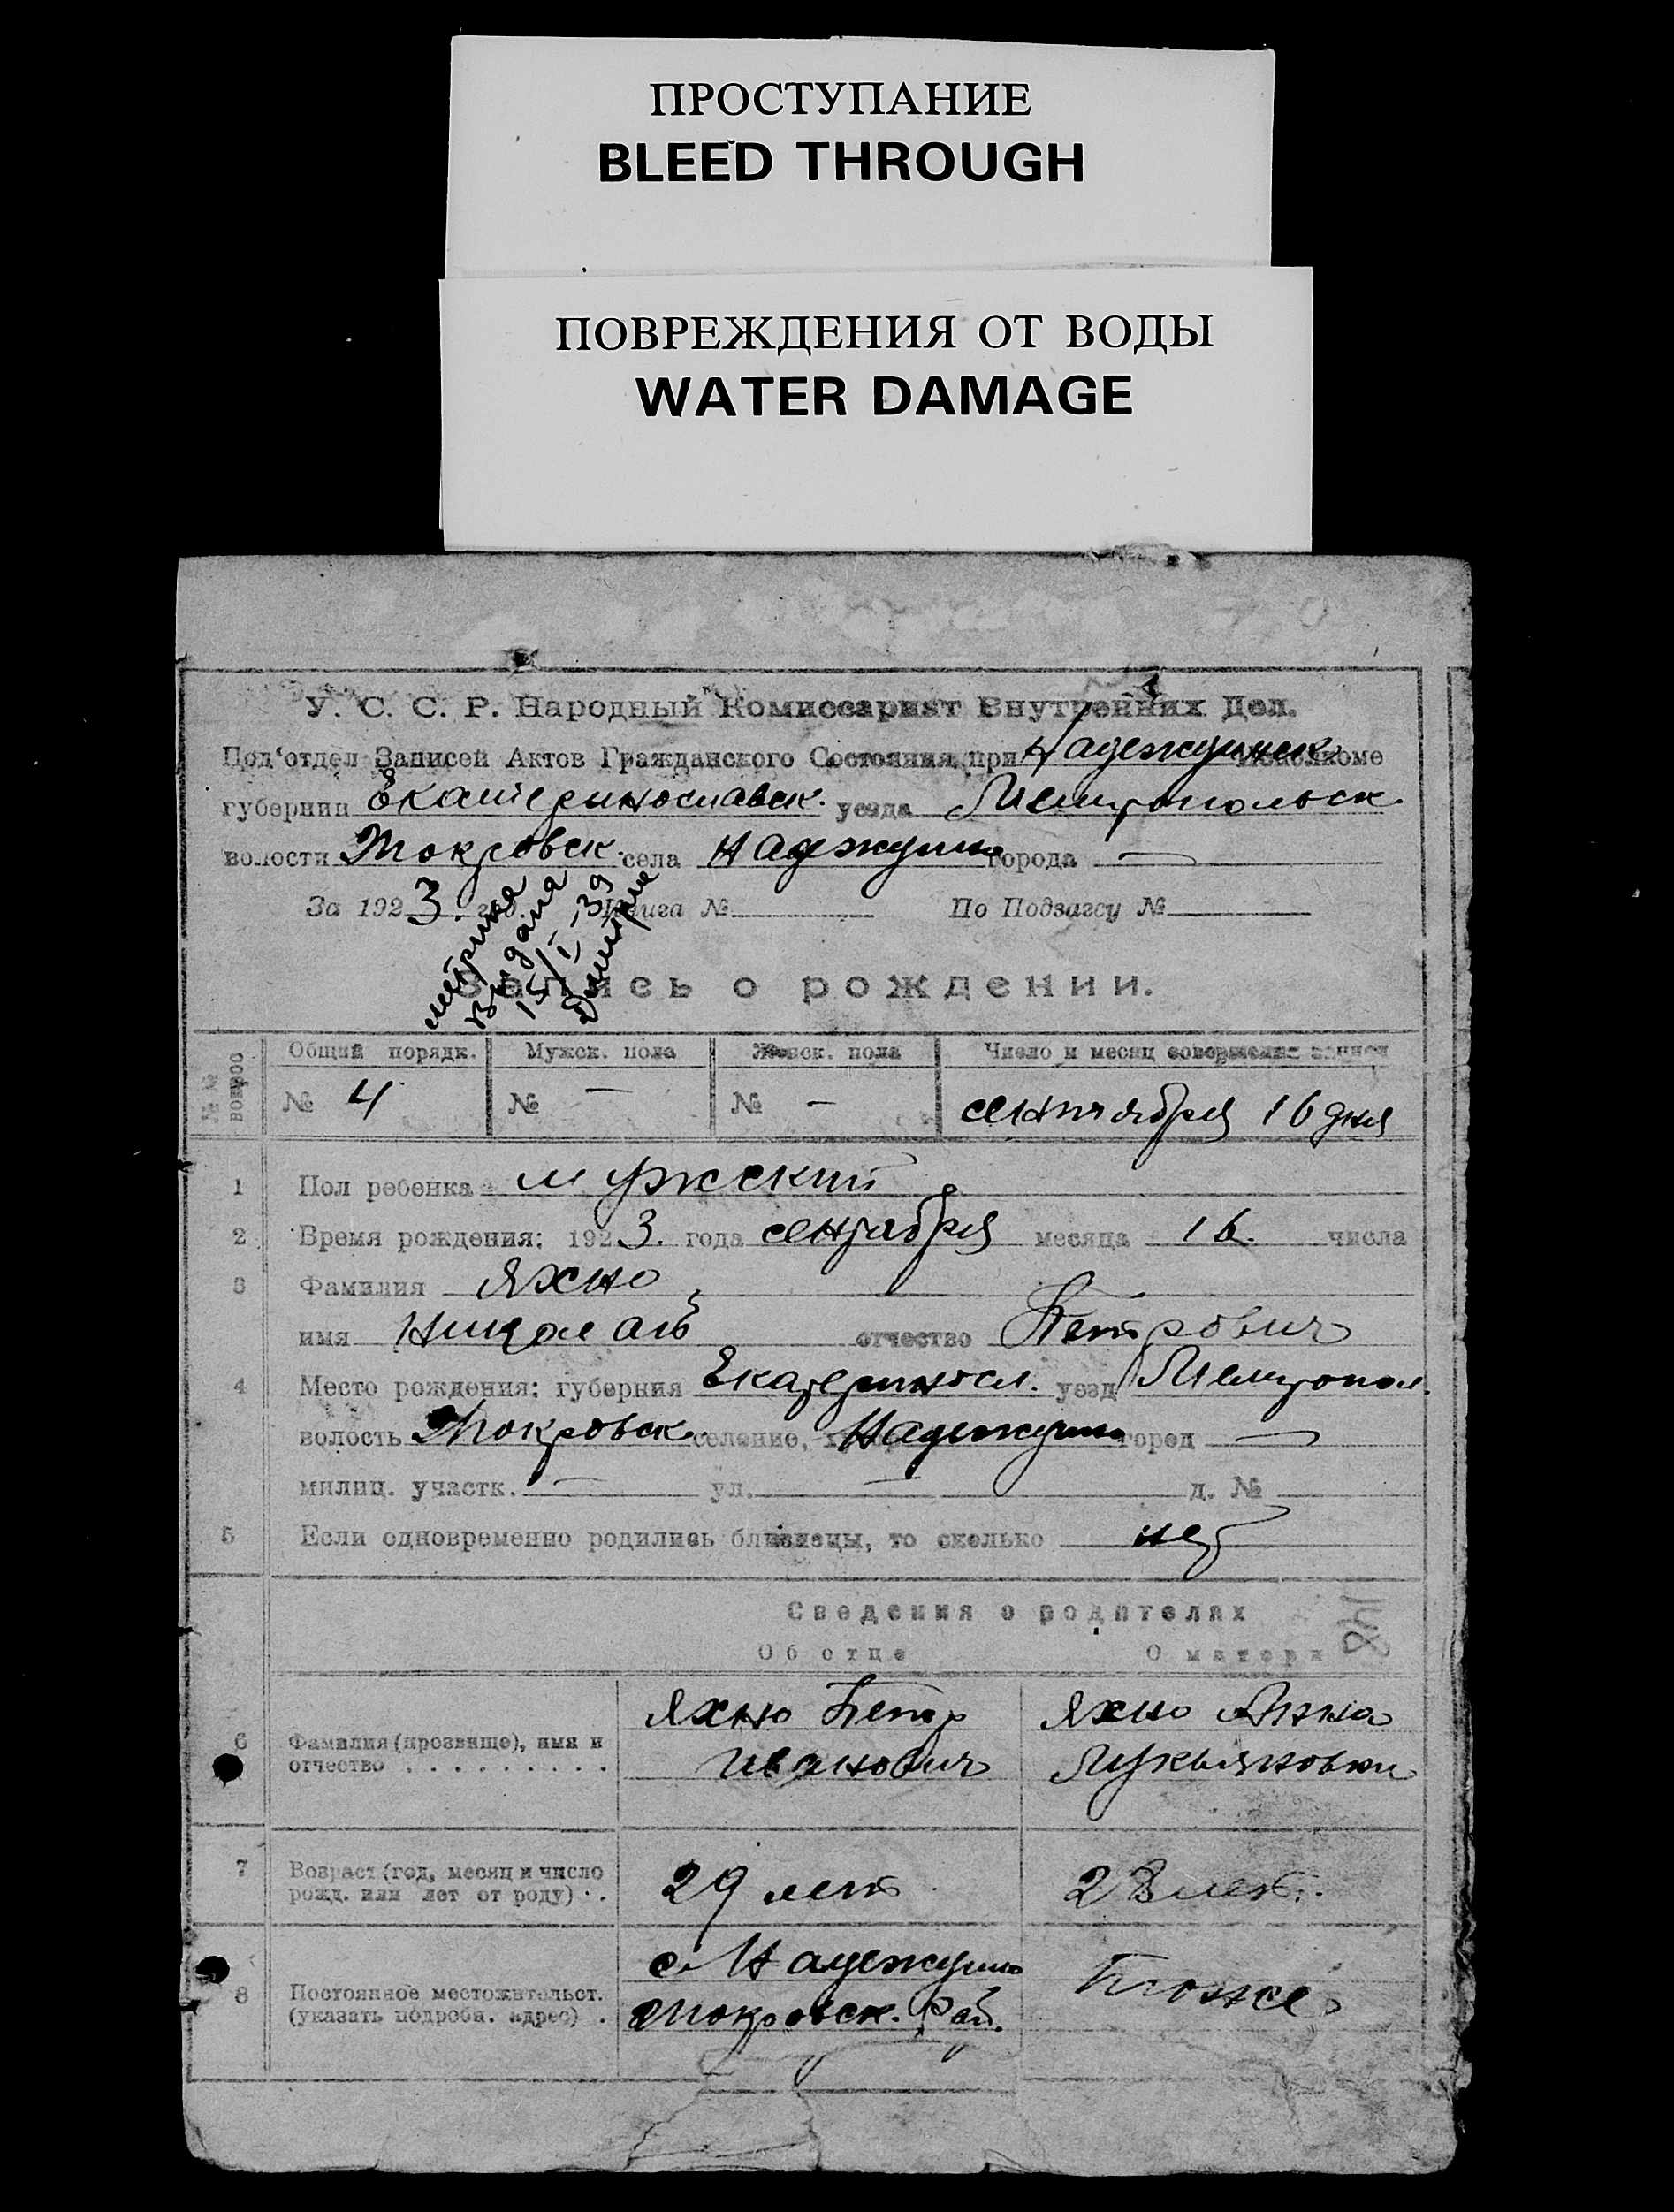 ПРОСТУПАНИЕ
BLEED THROUGH
ПОВРЕЖДЕНИЯ ОТ ВОДЫ
WATER DAMAGE
У. С. С. Р. Народный Комиссариат Внутренних Дел.
Под'отдел Записей Актов Гражданского Состояния при Надеждинск. Исполкоме
губернии Екатеринославск. уезда Мелитопольск.
волости Покровск. села Надеждино города —
За 1923 год. Книга № По Подзагсу №
метрика
выдана
15/I-39
Запись о рождении.
№№ вопросов
Общий порядк. Мужск. пола Женск. пола Число и месяц совершения записи
№ 4 № — № — сентября 16 дня
1 Пол ребенка мужский
2 Время рождения: 1923. года сентября месяца 16. числа
3 Фамилия Яхно
имя Николай отчество Петрович
4 Место рождения: губерния Екатериносл. уезд Мелитопол.
волость Покровск. селение, Надеждино город —
милиц. участк. — ул. — д. №
5 Если одновременно родились близнецы, то сколько нет
Сведения о родителях
148
Об отце О матери
6 Фамилия (прозвище), имя и отчество . . . . . . . . .
Яхно Петр
Иванович
Яхно Анна
Лукьяновна
7 Возраст (год, месяц и число
рожд. или лет от роду) . .
29 лет 28 лет.
8 Постоянное местожительст.
(указать подробн. адрес) .
с. Надеждино
Покровск. рай.
Тоже